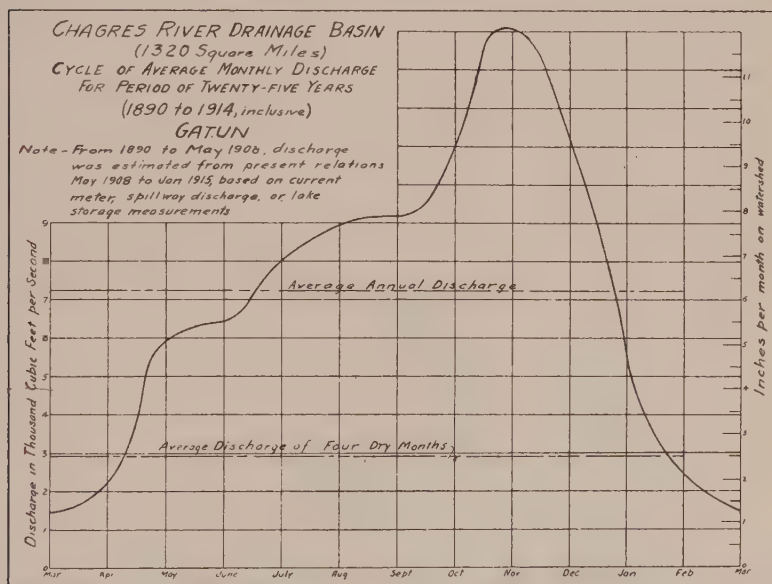 CHAGRES RIVER DRAINAGE BASIN
(1320 Square Miles)
CYCLE OF AVERAGE MONTHLY DISCHARGE
FOR PERIOD OF TWENTY-FIVE YEARS
(1890 to 1914, inclusive)
GATUN
Note - From 1890 to May 1908, discharge
was estimated from present relations
May 1908 to Jan 1915, based on current
meter, spillway discharge, or lake
storage measurements
Discharge in Thousand Cubic Feet per Second
9
7
6
5
4
3
2
1
0
Average Annual Discharge
Average Discharge of Four Dry Months
Inches per month on watershed
11
10
9
8
7
6
5
4
3
2
1
0
Mar Apr May June July Aug Sept Oct Nov Dec Jan Feb Mar